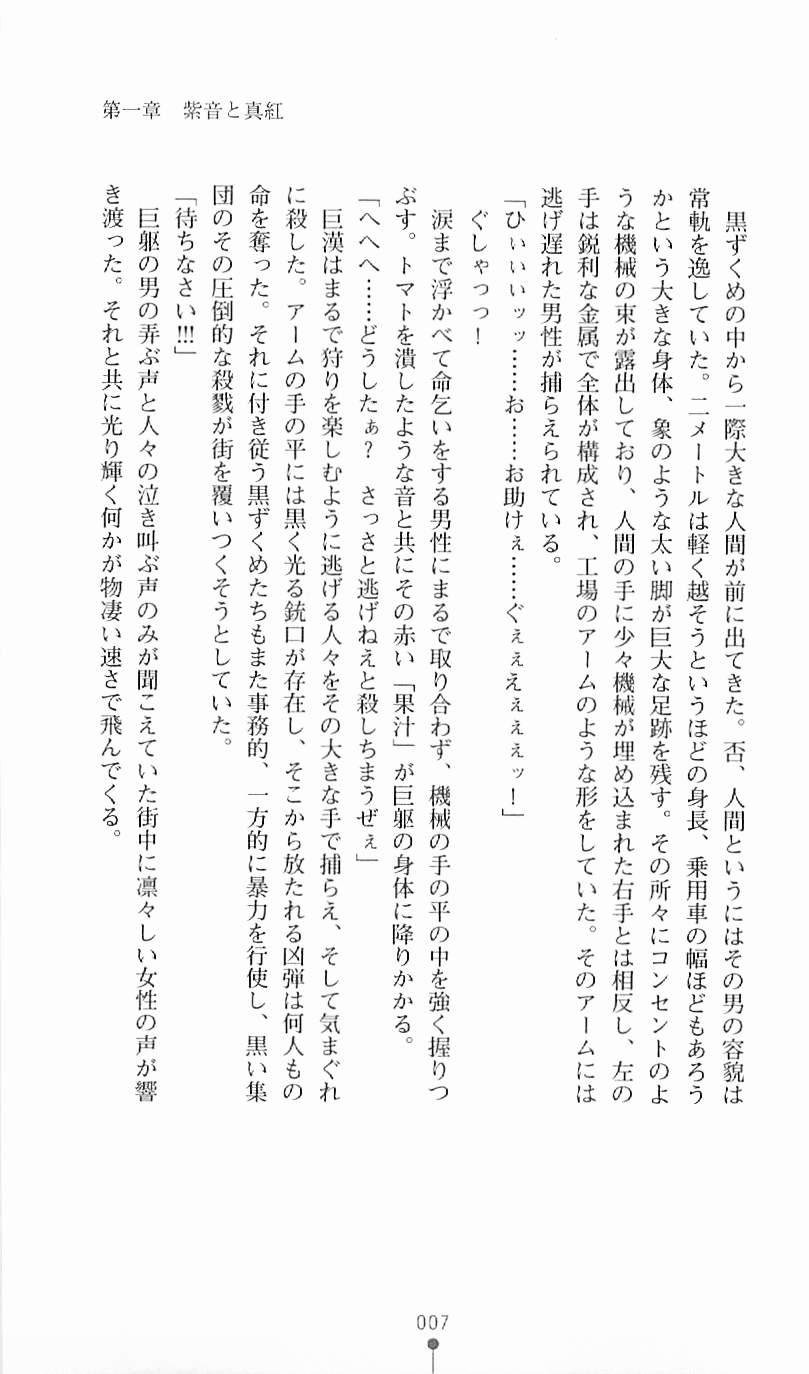 第一章　紫音と真紅
黒ずくめの中から一際大きな人間が前に出てきた。否、人間というにはその男の容貌は
常軌を逸していた。二メートルは軽く越そうというほどの身長、乗用車の幅ほどもあろう
かという大きな身体、象のような太い脚が巨大な足跡を残す。その所々にコンセントのよ
うな機械の束が露出しており、人間の手に少々機械が埋め込まれた右手とは相反し、左の
手は鋭利な金属で全体が構成され、工場のアームのような形をしていた。そのアームには
逃げ遅れた男性が捕らえられている。
「ひぃぃぃッッ……お……お助けぇ……ぐぇぇえぇぇぇッ！」
ぐしゃっっ！
涙まで浮かべて命乞いをする男性にまるで取り合わず、機械の手の平の中を強く握りつ
ぶす。トマトを潰したような音と共にその赤い「果汁」が巨躯の身体に降りかかる。
「へへへ……どうしたぁ？　さっさと逃げねえと殺しちまうぜぇ」
巨漢はまるで狩りを楽しむように逃げる人々をその大きな手で捕らえ、そして気まぐれ
に殺した。アームの手の平には黒く光る銃口が存在し、そこから放たれる凶弾は何人もの
命を奪った。それに付き従う黒ずくめたちもまた事務的、一方的に暴力を行使し、黒い集
団のその圧倒的な殺戮が街を覆いつくそうとしていた。
「待ちなさい!!!」
巨躯の男の弄ぶ声と人々の泣き叫ぶ声のみが聞こえていた街中に凛々しい女性の声が響
き渡った。それと共に光り輝く何かが物凄い速さで飛んでくる。
007